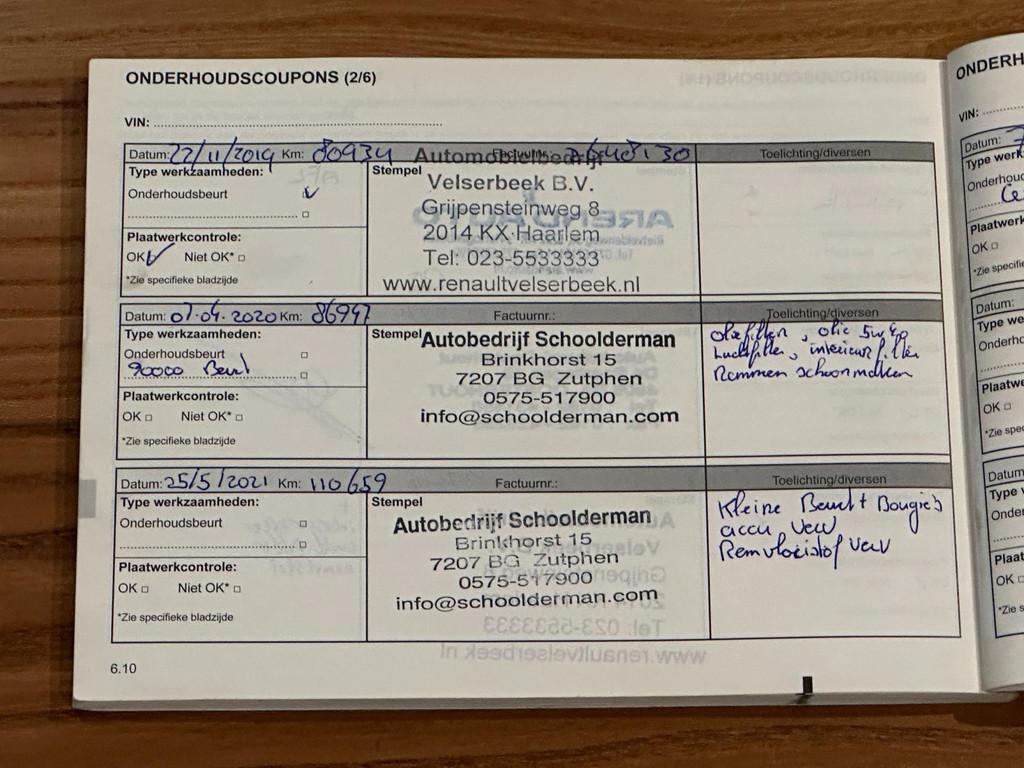 ONDERHOUDSCOUPONS (2/6)
VIN:
Datum: 22/11/2019 Km: 80934 Factuurnr.: Toelichting/diversen
Type werkzaamheden:
Onderhoudsbeurt
Plaatwerkcontrole:
OK Niet OK*
*Zie specifieke bladzijde
Stempel
Automobielbedrijf
Velserbeek B.V.
Grijpensteinweg 8
2014 KX Haarlem
Tel: 023-5533333
www.renaultvelserbeek.nl
Datum: 07-04-2020 Km: 86947 Factuurnr.: Toelichting/diversen
Type werkzaamheden:
Onderhoudsbeurt
90000 Beurt
Plaatwerkcontrole:
OK Niet OK*
*Zie specifieke bladzijde
Stempel
Autobedrijf Schoolderman
Brinkhorst 15
7207 BG Zutphen
0575-517900
info@schoolderman.com
oliefilter, olie
Luchtfilter, interieurfilter
Remmen schoonmaken
Datum: 25/5/2021 Km: 110659 Factuurnr.: Toelichting/diversen
Type werkzaamheden:
Onderhoudsbeurt
Plaatwerkcontrole:
OK Niet OK*
*Zie specifieke bladzijde
Stempel
Autobedrijf Schoolderman
Brinkhorst 15
7207 BG Zutphen
0575-517900
info@schoolderman.com
Kleine Beurt + Bougie's
accu verv
Remvloeistof verv
6.10
ONDERH
VIN:
Datum:
Type werk
Onderhoud
Plaatwerk
OK
*Zie specifie
Datum:
Type we
Onderho
Plaatwe
OK
*Zie spe
Datum
Type
Onde
Plaat
OK
*Zie s